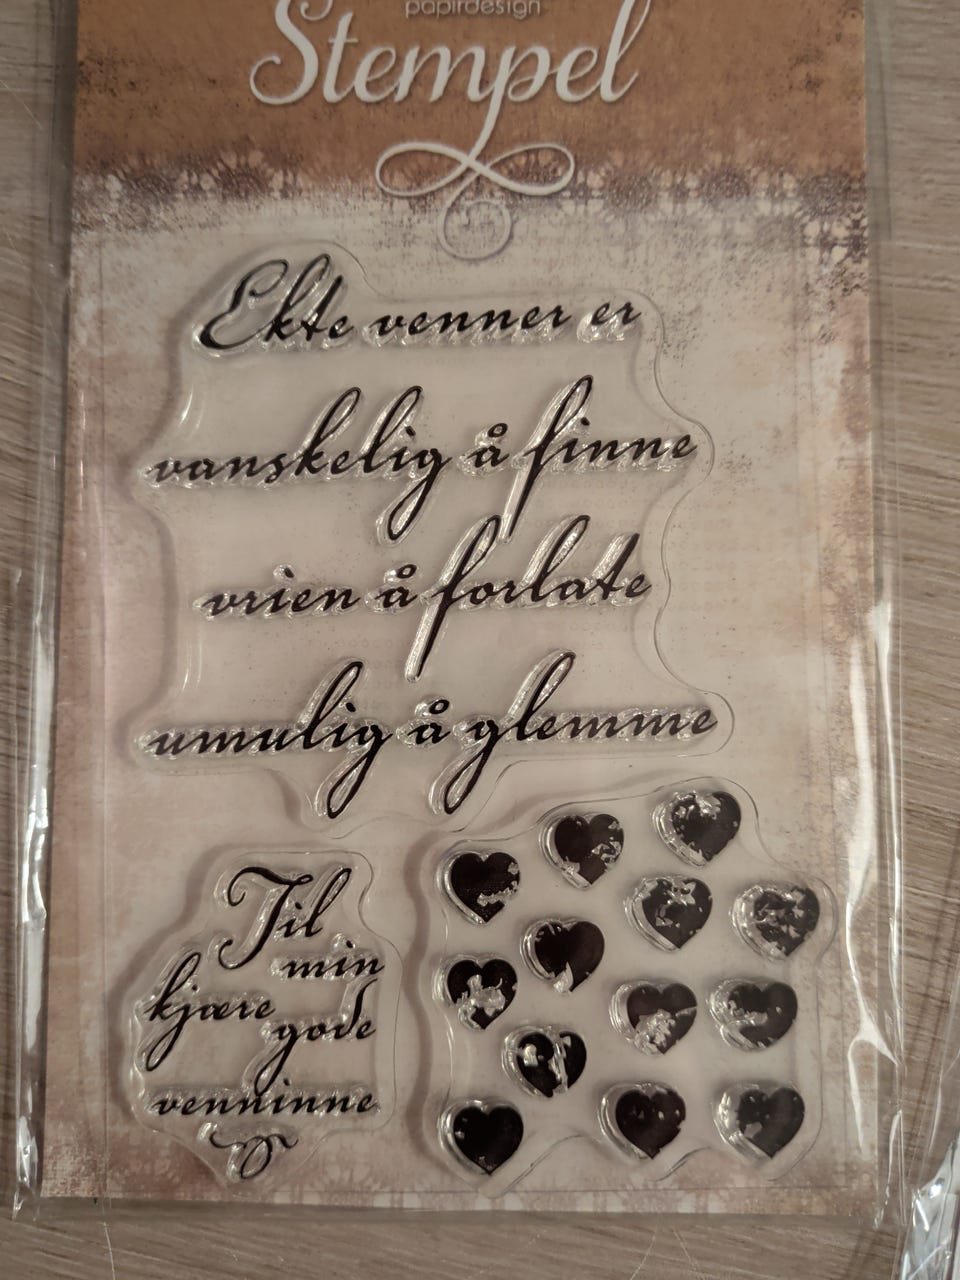 papirdesign
Stempel
Ekte venner er
vanskelig å finne
vrien å forlate
umulig å glemme
Til
min
kjære
gode
venninne